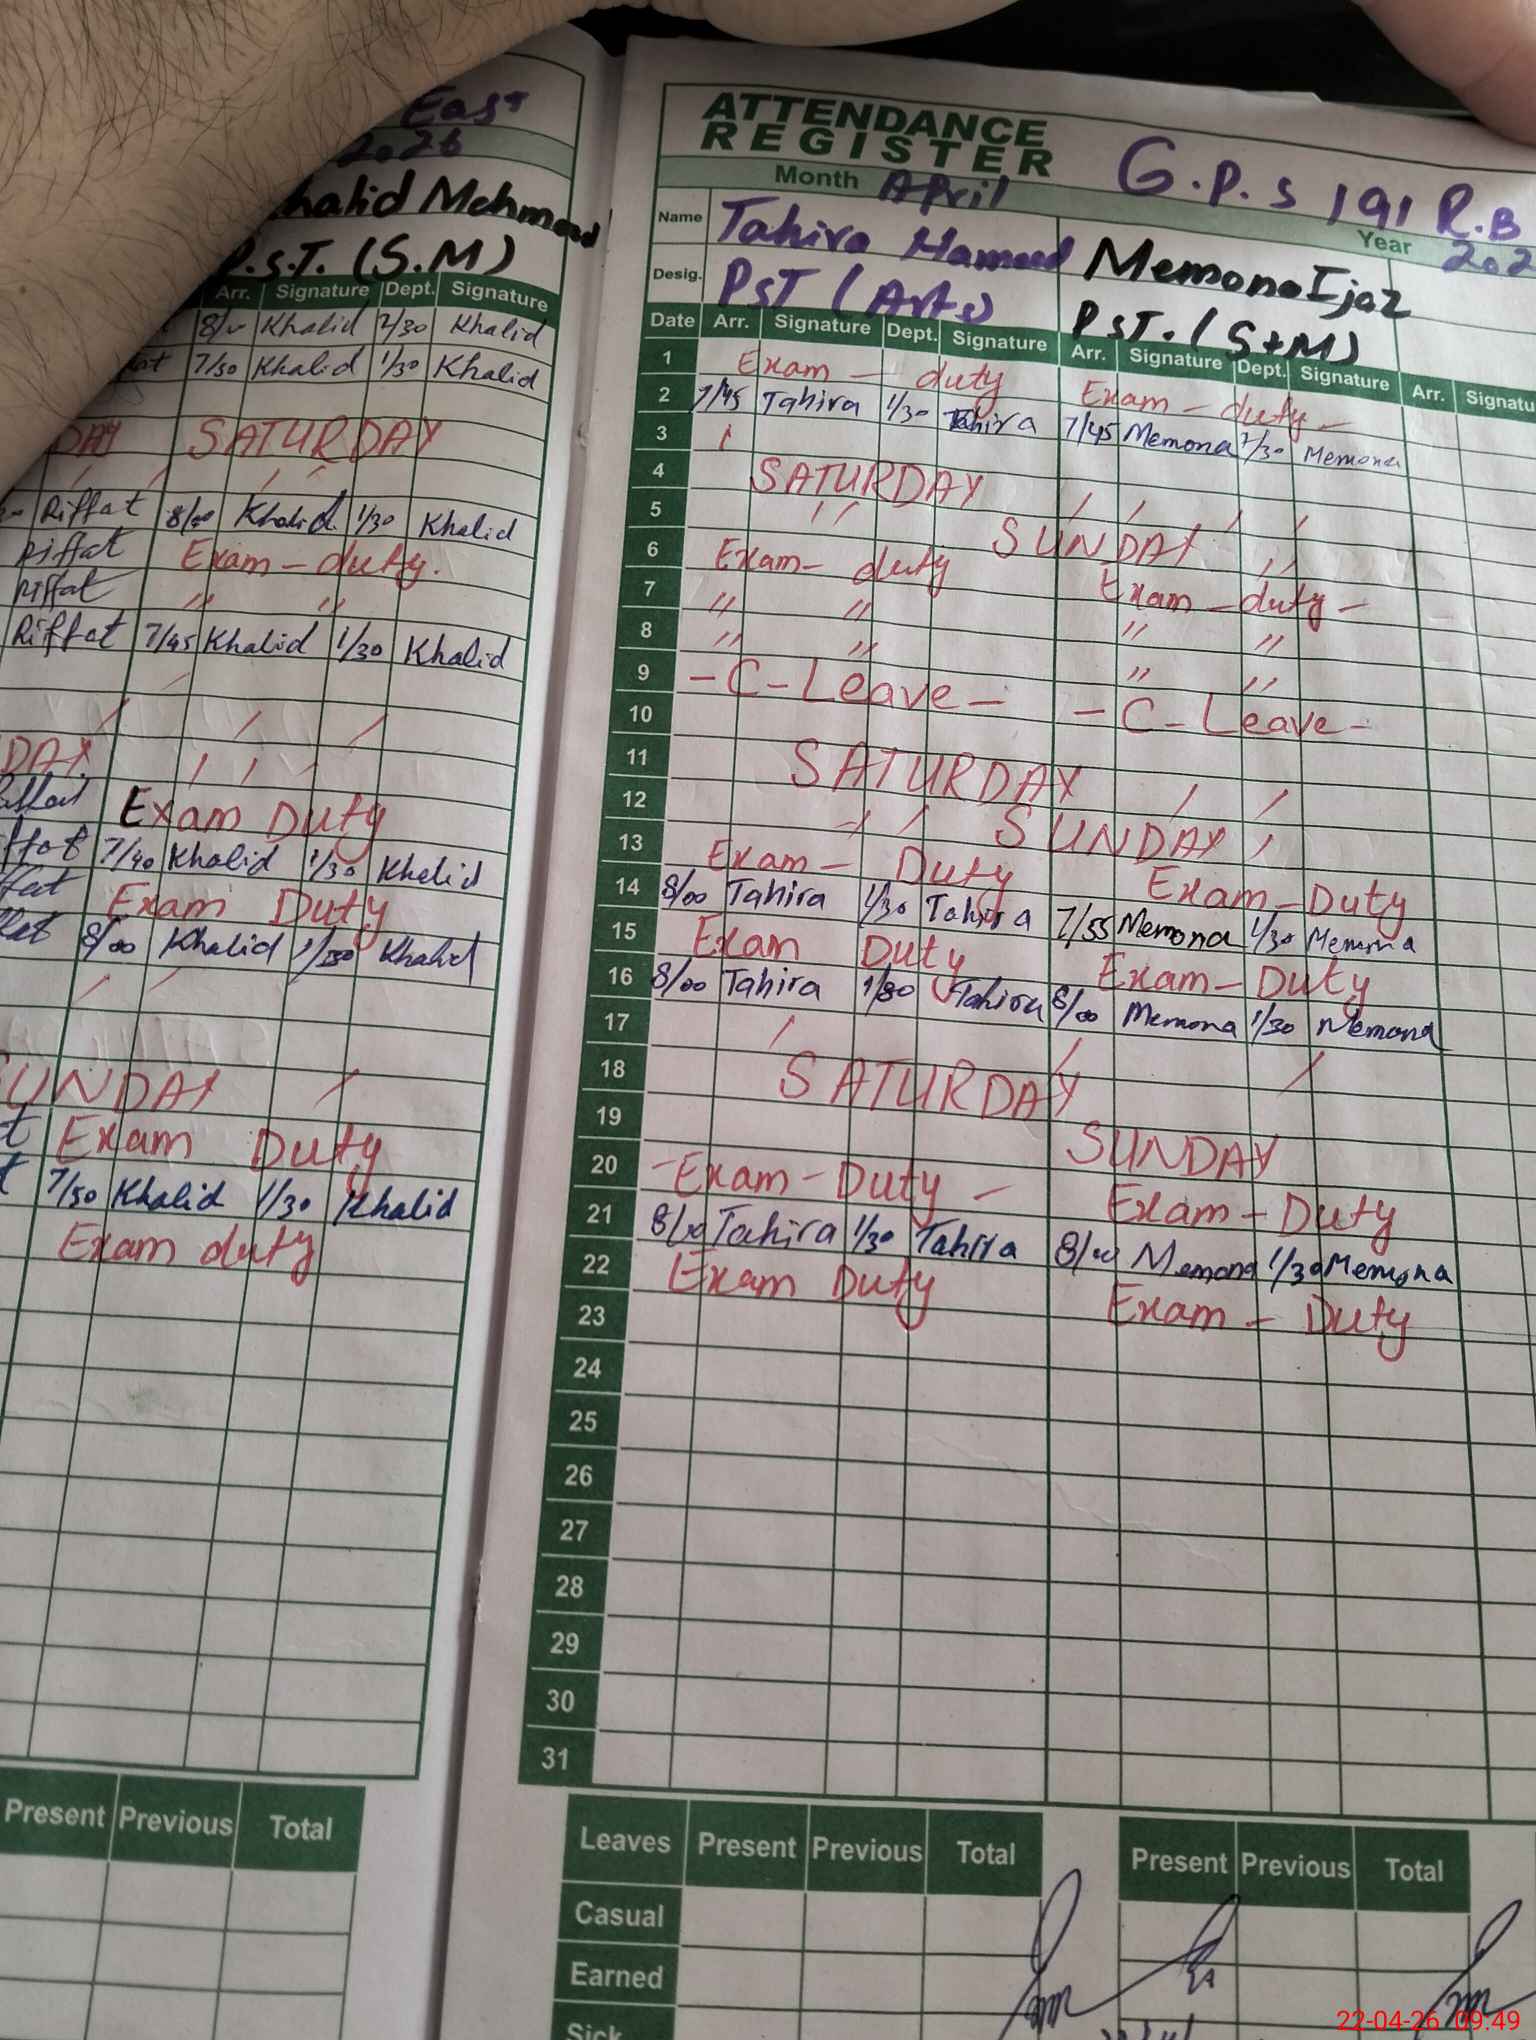 East
2026
Khalid Mehmood
P.S.T. (S.M)
Arr. Signature Dept. Signature
8/00 Khalid 2/30 Khalid
7/50 Khalid 1/30 Khalid
SATURDAY
Riffat 8/00 Khalid 1/30 Khalid
Riffat Exam - duty.
Riffat " "
Riffat 7/45 Khalid 1/30 Khalid
DAY
Exam Duty
7/40 Khalid 1/30 Khalid
Exam Duty
8/00 Khalid 1/30 Khalid
SUNDAY
Exam Duty
7/50 Khalid 1/30 Khalid
Exam duty
Present Previous Total
ATTENDANCE
REGISTER
G.P.S 191 R.B
Month April Year 202
Name Tahira Hameed Memona Ijaz
Desig. PST (Arts) PST. (S+M)
Date Arr. Signature Dept. Signature Arr. Signature Dept. Signature Arr. Signatu
1 Exam - duty Exam - duty -
2 7/45 Tahira 1/30 Tahira 7/45 Memona 1/30 Memona
3
4 SATURDAY
5 " SUNDAY "
6 Exam - duty Exam - duty -
7 " " " "
8 " " " "
9 - C - Leave - - C - Leave -
10
11 SATURDAY
12 SUNDAY
13 Exam - Duty Exam - Duty
14 8/00 Tahira 1/30 Tahira 7/55 Memona 1/30 Memona
15 Exam Duty Exam - Duty
16 8/00 Tahira 1/30 Tahira 8/00 Memona 1/30 Memona
17
18 SATURDAY
19 SUNDAY
20 - Exam - Duty - Exam - Duty
21 8/00 Tahira 1/30 Tahira 8/00 Memona 1/30 Memona
22 Exam Duty Exam - Duty
23
24
25
26
27
28
29
30
31
Leaves Present Previous Total Present Previous Total
Casual
Earned
Sick
22-04-26 09:49